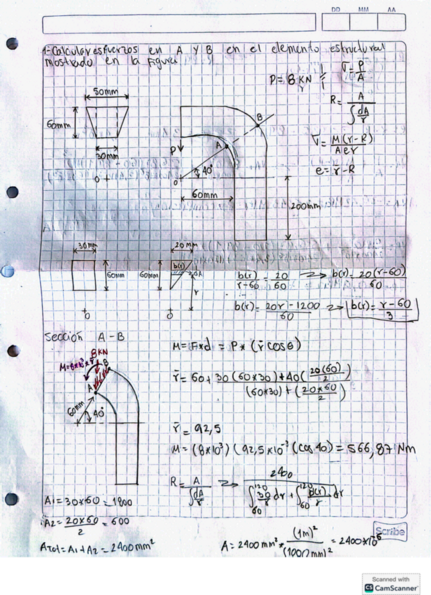 DD MM AA
1-Calcular esfuerzos en A y B en el elemento estructural
mostrado en la Figura
P = 8 KN
σ = P/A
R = A / ∫ dA/r
σ = M(r-R) / Aer
e = r̄ - R
50mm
60mm
30mm
P
A
B
40°
O
60mm
200mm
30mm
60mm
20mm
60mm
b(r)
dA
r
b(r)/r-60 = 20/60 → b(r) = 20(r-60)/60
b(r) = 20r-1200/60 → b(r) = r-60/3
Sección A-B
8KN
B
A
60mm
40°
M = F*d = P*(r̄ cosθ)
r̄ = 60 + 30(60*30) + 40(20(60)/2) / (60*30) + (20*60/2)
r̄ = 92,5
M = (8*10³)(92,5*10⁻³)(cos 40) = 566,87 Nm
R = A / ∫ dA/r → 2400 / ∫₆₀¹²⁰ 30/r dr + ∫₆₀¹²⁰ b(r)/r dr
A1 = 30*60 = 1800
A2 = 20*60/2 = 600
ATot = A1 + A2 = 2400 mm²
A = 2400 mm² * (1m)²/(1000mm)² = 2400*10⁻⁶
Scribe
Scanned with
CS CamScanner